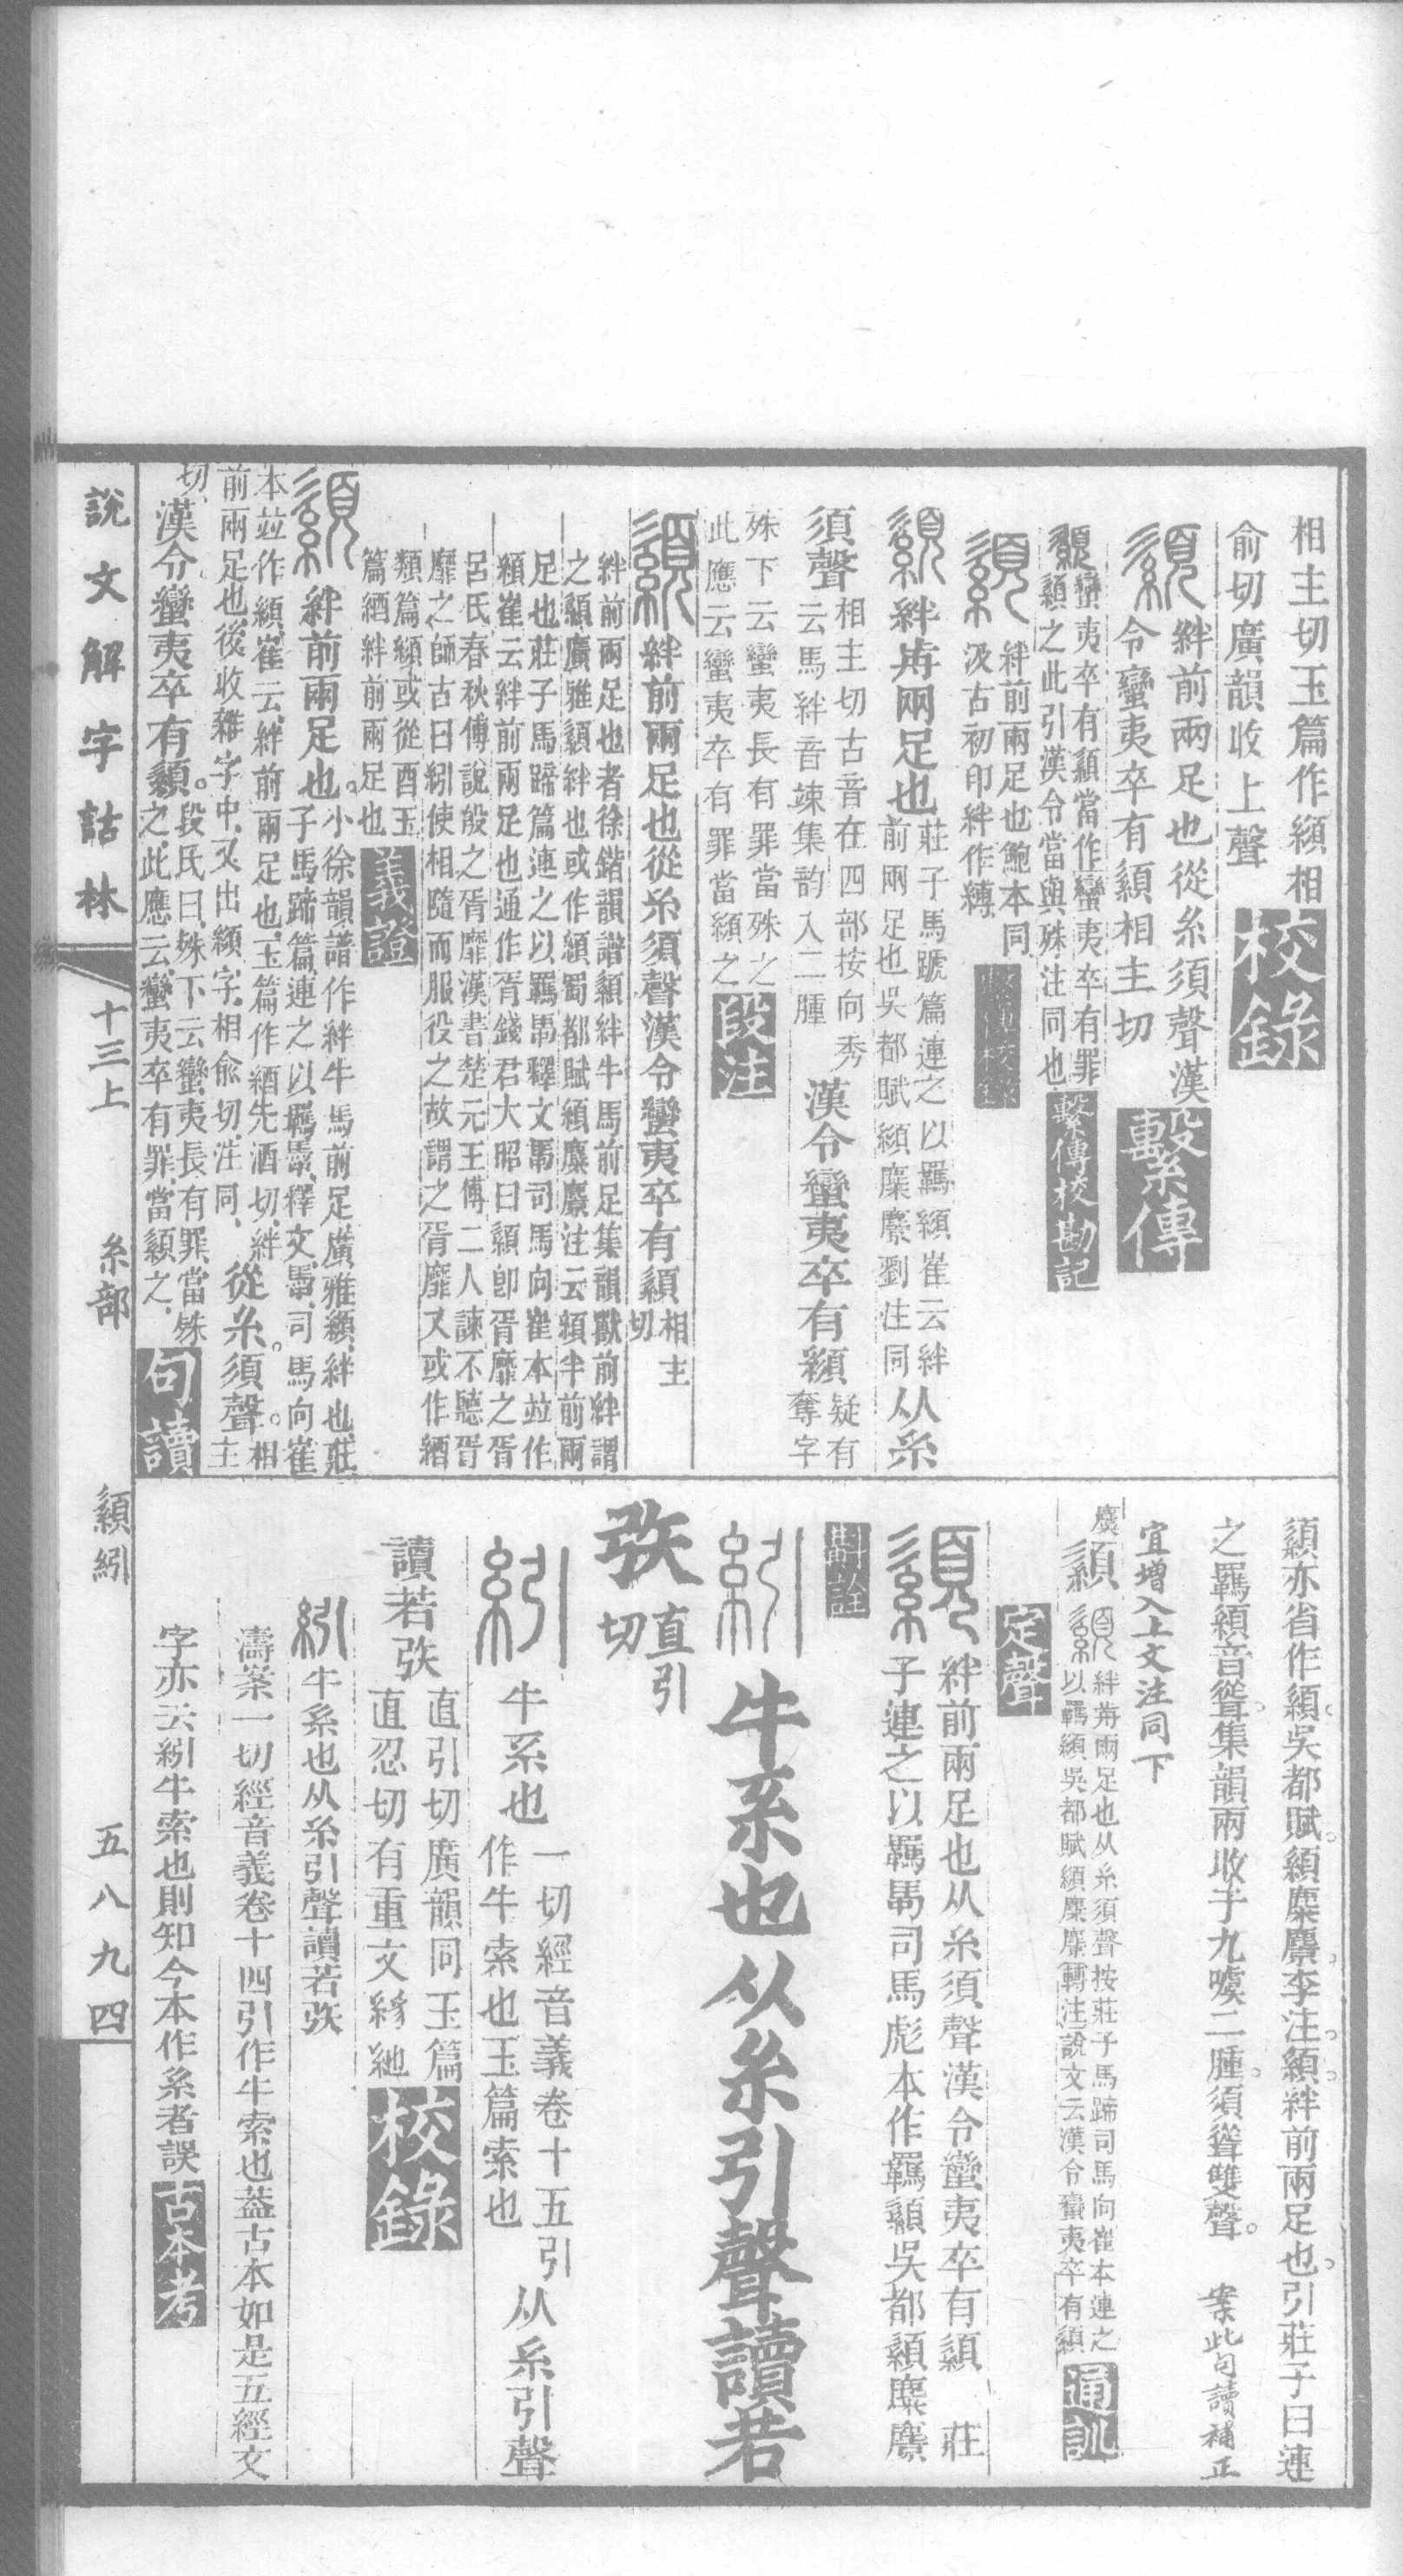 相主切玉篇作䋶相
俞切廣韻收上聲
校錄
䋶絆前兩足也從糸須聲漢
令蠻夷卒有䋶相主切
繫傳
蠻夷卒有䋶當作蠻夷卒有罪
䋶之此引漢令當與殊注同也
繫傳校勘記
絆前兩足也鮑本同
汲古初印絆作縛
䋶絆歬兩足也
莊子馬蹏篇連之以羈䋶崔云絆
前兩足也吳都賦䋶麋麖劉注同
从糸
須聲
相主切古音在四部按向秀
云馬絆音竦集韵入二腫
漢令蠻夷卒有䋶
疑有
奪字
殊下云蠻夷長有罪當殊之
此應云蠻夷卒有罪當䋶之
段注
䋶絆前兩足也從糸須聲漢令蠻夷卒有䋶
相主
切
絆前兩足也者徐鍇韻譜䋶絆牛馬前足集韻獸前絆謂
之䋶廣雅䋶絆也或作䋶蜀都賦䋶麋麖注云䋶半前兩
足也莊子馬蹄篇連之以羈馽釋文馽司馬向崔本並作
䋶崔云絆前兩足也通作胥錢君大昭曰䋶卽胥靡之胥
呂氏春秋傳說殷之胥靡漢書楚元王傳二人諫不聽胥
靡之師古曰紖使相隨而服役之故謂之胥靡又或作綇
類篇䋶或從酉玉
篇綇絆前兩足也
義證
䋶絆前兩足也。
小徐韻譜作絆牛馬前足廣雅䋶、絆也、莊
子馬蹄篇、連之以羈馽、釋文、馽、司馬向崔
本竝作䋶、崔云、絆前兩足也、玉篇作綇先酒切、絆
前兩足也、後收雜字中、又出䋶字、相俞切、注同、
從糸。須聲。
相
主
切、
漢令蠻夷卒有䋶。
段氏曰、殊下云、蠻夷長有罪、當殊
之、此應云、蠻夷卒有罪、當䋶之、
句讀
說文解字詁林
十三上
糸部
䋶紖
五八九四
䋶亦省作䋶。吳都賦。䋶麋麖。李注。䋶。絆前兩足也。引莊子曰連
之羈䋶音聳。集韻兩收于九噳二腫。須聳雙聲。
案此句讀補正
宜增入上文注同下
廣䋶
絆歬兩足也从糸須聲按莊子馬蹄司馬向崔本連之
以羈䋶吳都賦䋶麋麖轉注說文云漢令蠻夷卒有䋶
通訓
定聲
䋶絆前兩足也从糸須聲漢令蠻夷卒有䋶 莊
子連之以羈馽司馬彪本作羈䋶吳都䋶麋麖
斠詮
紖牛系也从糸引聲讀若
矤
直引
切
紖牛系也
一切經音義卷十五引
作牛索也玉篇索也
从糸引聲
讀若矤
直引切廣韻同玉篇
直忍切有重文絼紖
校錄
紖牛系也从糸引聲讀若矤
濤案一切經音義卷十四引作牛索也葢古本如是五經文
字亦云紖牛索也則知今本作系者誤
古本考